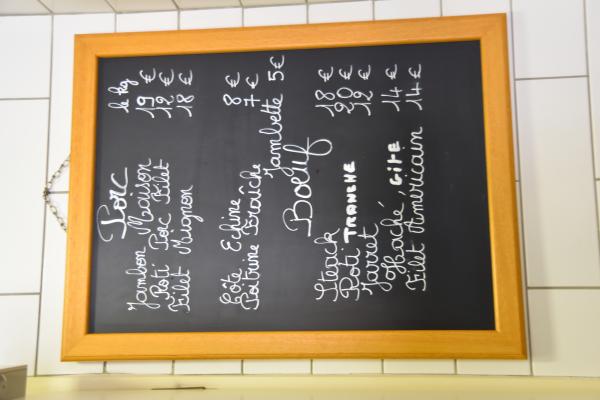 Porc le kg
Jambon Maison 19 €
Roti Porc Filet 12 €
Filet Mignon 18 €
Côte Echine 8 €
Poitrine Fraîche 7 €
Jambette 5 €
Boeuf
Steack 18 €
Roti TRANCHE 20 €
Jarret 12 €
Haché, GITE 14 €
Filet Américain 14 €